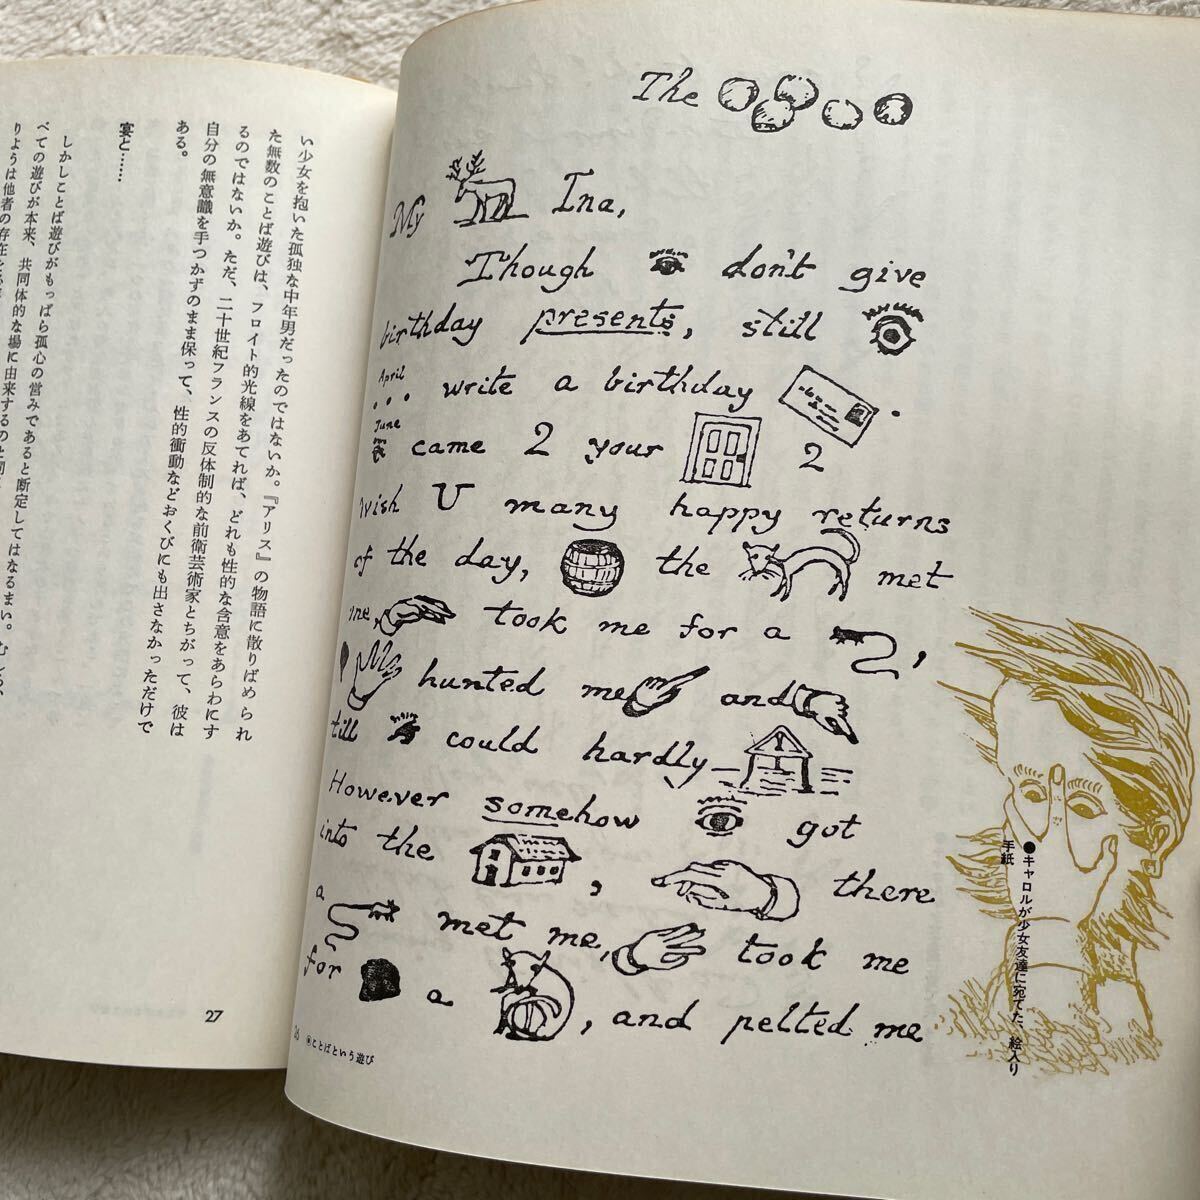 The
My Ina,
Though don't give
birthday presents, still
April
write a birthday .
June
came 2 your 2
wish U many happy returns
of the day, the met
me, took me for a ,
hunted me and
till could hardly
However somehow got
into the , there
a met me, took me
for a , and pelted me
●キャロルが少女友達に宛てた、絵入り
手紙
26 ●ことばという遊び
い少女を抱いた孤独な中年男だったのではないか。『アリス』の物語に散りばめられ
た無数のことば遊びは、フロイト的光線をあてれば、どれも性的な含意をあらわにす
るのではないか。ただ、二十世紀フランスの反体制的な前衛芸術家とちがって、彼は
自分の無意識を手つかずのまま保って、性的衝動などおくびにも出さなかっただけで
ある。
宴と……
しかしことば遊びがもっぱら孤心の営みであると断定してはなるまい。むしろ、
べての遊びが本来、共同体的な場に由来するのと同
りようは他者の存在を
27